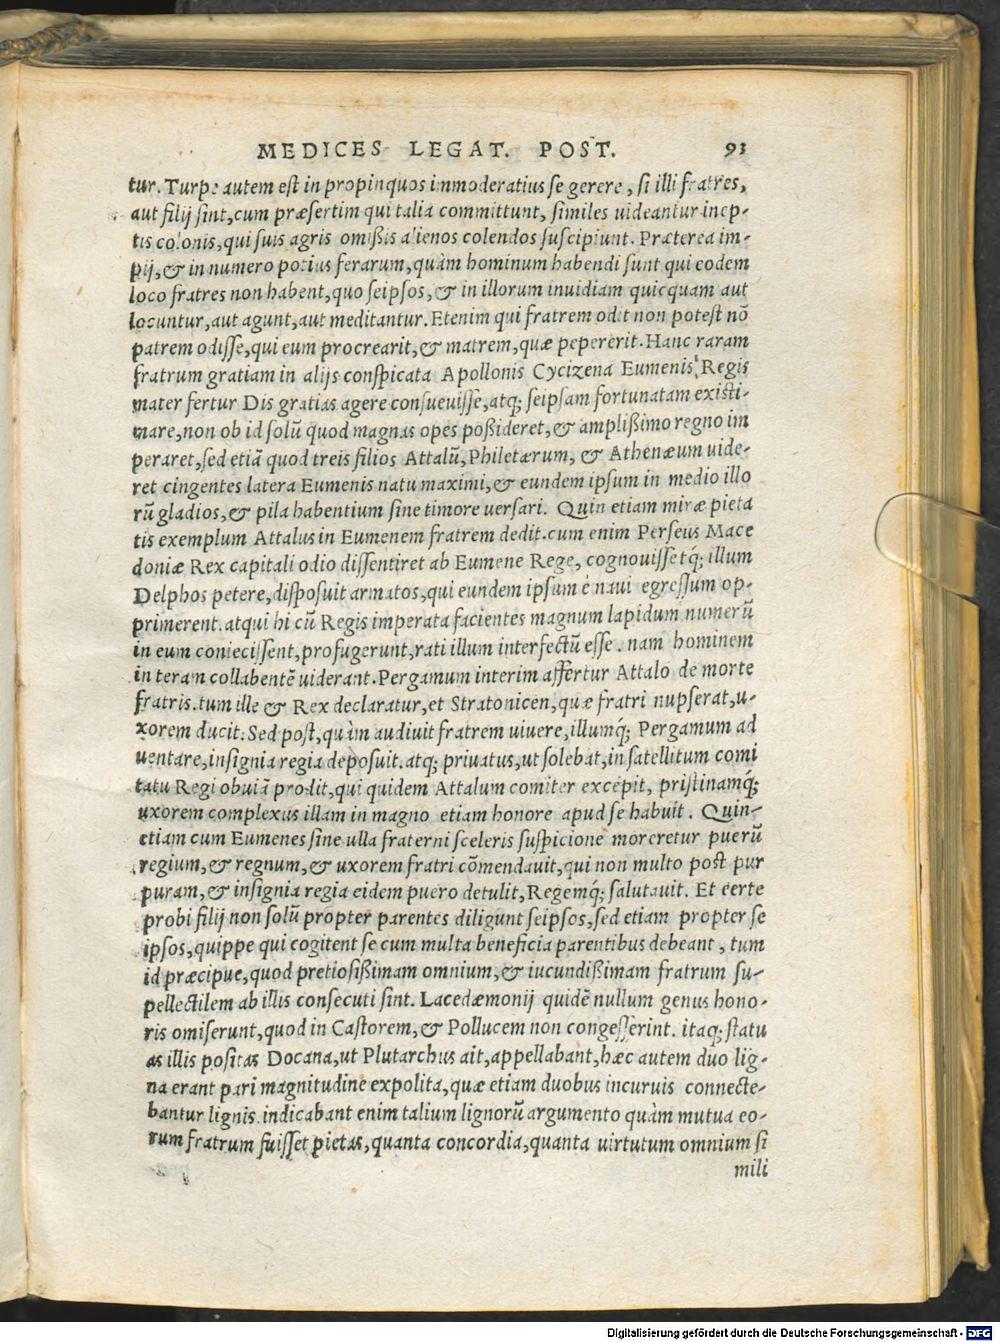 MEDICES LEGAT. POST. 93
tur. Turpe autem est in propinquos immoderatius se gerere, si illi fratres,
aut filij sint, cum præsertim qui talia committunt, similes uideantur inep-
tis colonis, qui suis agris omißis alienos colendos suscipiunt. Præterea im-
pij, & in numero potius ferarum, quàm hominum habendi sunt qui eodem
loco fratres non habent, quo seipsos, & in illorum inuidiam quicquam aut
locuntur, aut agunt, aut meditantur. Etenim qui fratrem odit non potest nō
patrem odisse, qui eum procrearit, & matrem, quæ pepererit. Hanc raram
fratrum gratiam in alijs conspicata Apollonis Cycizena Eumenis Regis
mater fertur Dis gratias agere consueuisse, atq; seipsam fortunatam existi-
mare, non ob id solū quod magnas opes poßideret, & amplißimo regno im
peraret, sed etiā quod treis filios Attalū, Philetærum, & Athenæum uide-
ret cingentes latera Eumenis natu maximi, & eundem ipsum in medio illo
rū gladios, & pila habentium sine timore uersari. Quin etiam miræ pieta
tis exemplum Attalus in Eumenem fratrem dedit. cum enim Perseus Mace
doniæ Rex capitali odio dissentiret ab Eumene Rege, cognouissetq́; illum
Delphos petere, disposuit armatos, qui eundem ipsum è naui egressum op-
primerent. atqui hi cū Regis imperata facientes magnum lapidum numerū
in eum coniecissent, profugerunt, rati illum interfectū esse. nam hominem
in teram collabentē uiderant. Pergamum interim affertur Attalo de morte
fratris. tum ille & Rex declaratur, et Stratonicen, quæ fratri nupserat, u-
xorem ducit. Sed post, quàm audiuit fratrem uiuere, illumq́; Pergamum ad
uentare, insignia regia deposuit. atq; priuatus, ut solebat, in satellitum comi
tatu Regi obuiā prodit, qui quidem Attalum comiter excepit, pristinamq́;
uxorem complexus illam in magno etiam honore apud se habuit. Quin-
etiam cum Eumenes sine ulla fraterni sceleris suspicione moreretur puerū
regium, & regnum, & uxorem fratri cōmendauit, qui non multo post pur
puram, & insignia regia eidem puero detulit, Regemq́; salutauit. Et certe
probi filij non solū propter parentes diligunt seipsos, sed etiam propter se
ipsos, quippe qui cogitent se cum multa beneficia parentibus debeant, tum
id præcipue, quod pretiosißimam omnium, & iucundißimam fratrum su-
pellectilem ab illis consecuti sint. Lacedæmonij quidē nullum genus hono-
ris omiserunt, quod in Castorem, & Pollucem non congesserint. itaq; statu
as illis positas Docana, ut Plutarchus ait, appellabant, hæc autem duo lig-
na erant pari magnitudine expolita, quæ etiam duobus incuruis connecte-
bantur lignis. indicabant enim talium lignorū argumento quàm mutua eo-
rum fratrum fuisset pietas, quanta concordia, quanta uirtutum omnium si
mili
Digitalisierung gefördert durch die Deutsche Forschungsgemeinschaft - DFG